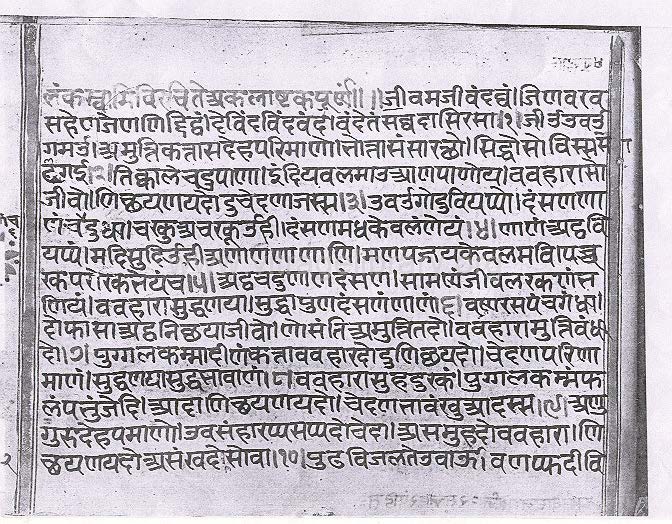 लंकस्वामिविरचितेअकलाष्टकपूर्ण॥॥जीवमजीवंदव्वं।जिणवरव
सहेणजेणणिद्दिठं।देविंदविंदवंदं।वंदेतंसव्वदासिरसा।१।जीउउवउ
गमउ।अमुत्तिकत्तासदेहपरिमाणो।भोत्तासंसारछो।सिद्धोसोविस्ससो
ढगई।२।तिक्कालेचदुपाणा।इंदियबलमाउआणपाणोय।ववहारासो
जीवो।णिछयणयदोदुचेदणाजस्स।३।उवउगोदुवियप्पो।दंसणणा
णंचदुधा।चरकुअचरकूउही।दंसणमधकेवलंणेयं।४।णाणंअट्ठवि
यप्पं।मदिसुदिउहीअणाणणाणाणि।मणपज्जयकेवलमवि।पच्च
रकपरोरकभेयंच।५।अट्ठचदुणाणदंसण।सामण्णंजीवलरकणंभ
णियं।ववहारासुद्धणया।सुद्धंपुणदंसणंणाणं।६।वण्णरसपंचगंधा।
दोफासाअट्ठणिछयाजीवो।णोसंतिअमुत्तितदो।ववहारामुत्तिबंधा
दो।७।पुग्गलकम्मादीणंकत्ताववहारदोदुणिछयदो।चेदणपरिणा
माणं।सुद्धणयासुद्धभावाणं।८।ववहारासुहदुरकं।पुग्गलकम्मंफ
लंपभुंजेदि।आदाणिछयणयदो।चेदणभावंखुआदस्स।९।अणु
गुरुदेहपमाणो।उवसंहारप्पसप्पदोचेदा।असमुहदोववहारा।णि
छयणयदोअसंखदेसोवा।१०।पुढविजलतेउवाऊ।वणप्फदीवि